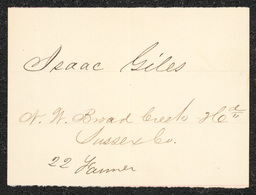 Isaac Giles
N. W. Broad Creek Hd
Sussex Co.
22 Farmer